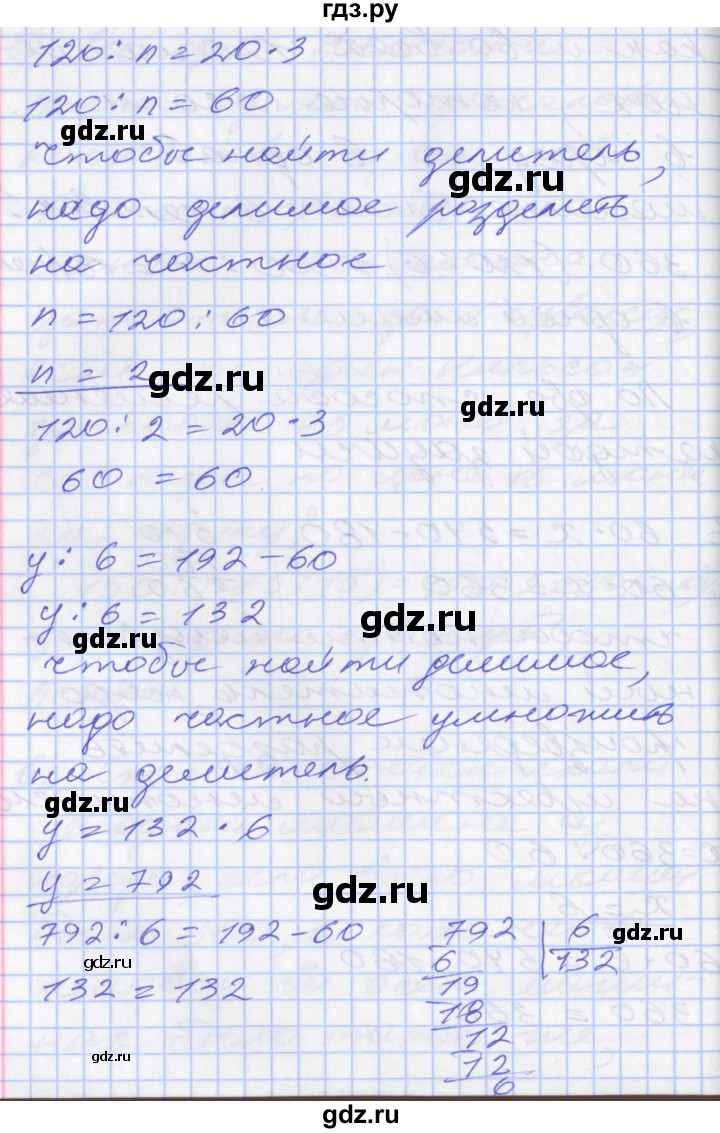 гдз.ру
120 : n = 20 · 3
120 : n = 60
gdz.ru
чтобы найти делитель,
gdz.ru
надо делимое разделить
на частное
n = 120 : 60
n = 2
gdz.ru
gdz.ru
120 : 2 = 20 · 3
60 = 60
y : 6 = 192 - 60
y : 6 = 132
gdz.ru
gdz.ru
чтобы найти делимое,
надо частное умножить
на делитель.
gdz.ru
y = 132 · 6
y = 792
gdz.ru
792 : 6 = 192 - 60
792 6
gdz.ru
gdz.ru
6 132
132 = 132
19
18
12
gdz.ru
12
6
gdz.ru